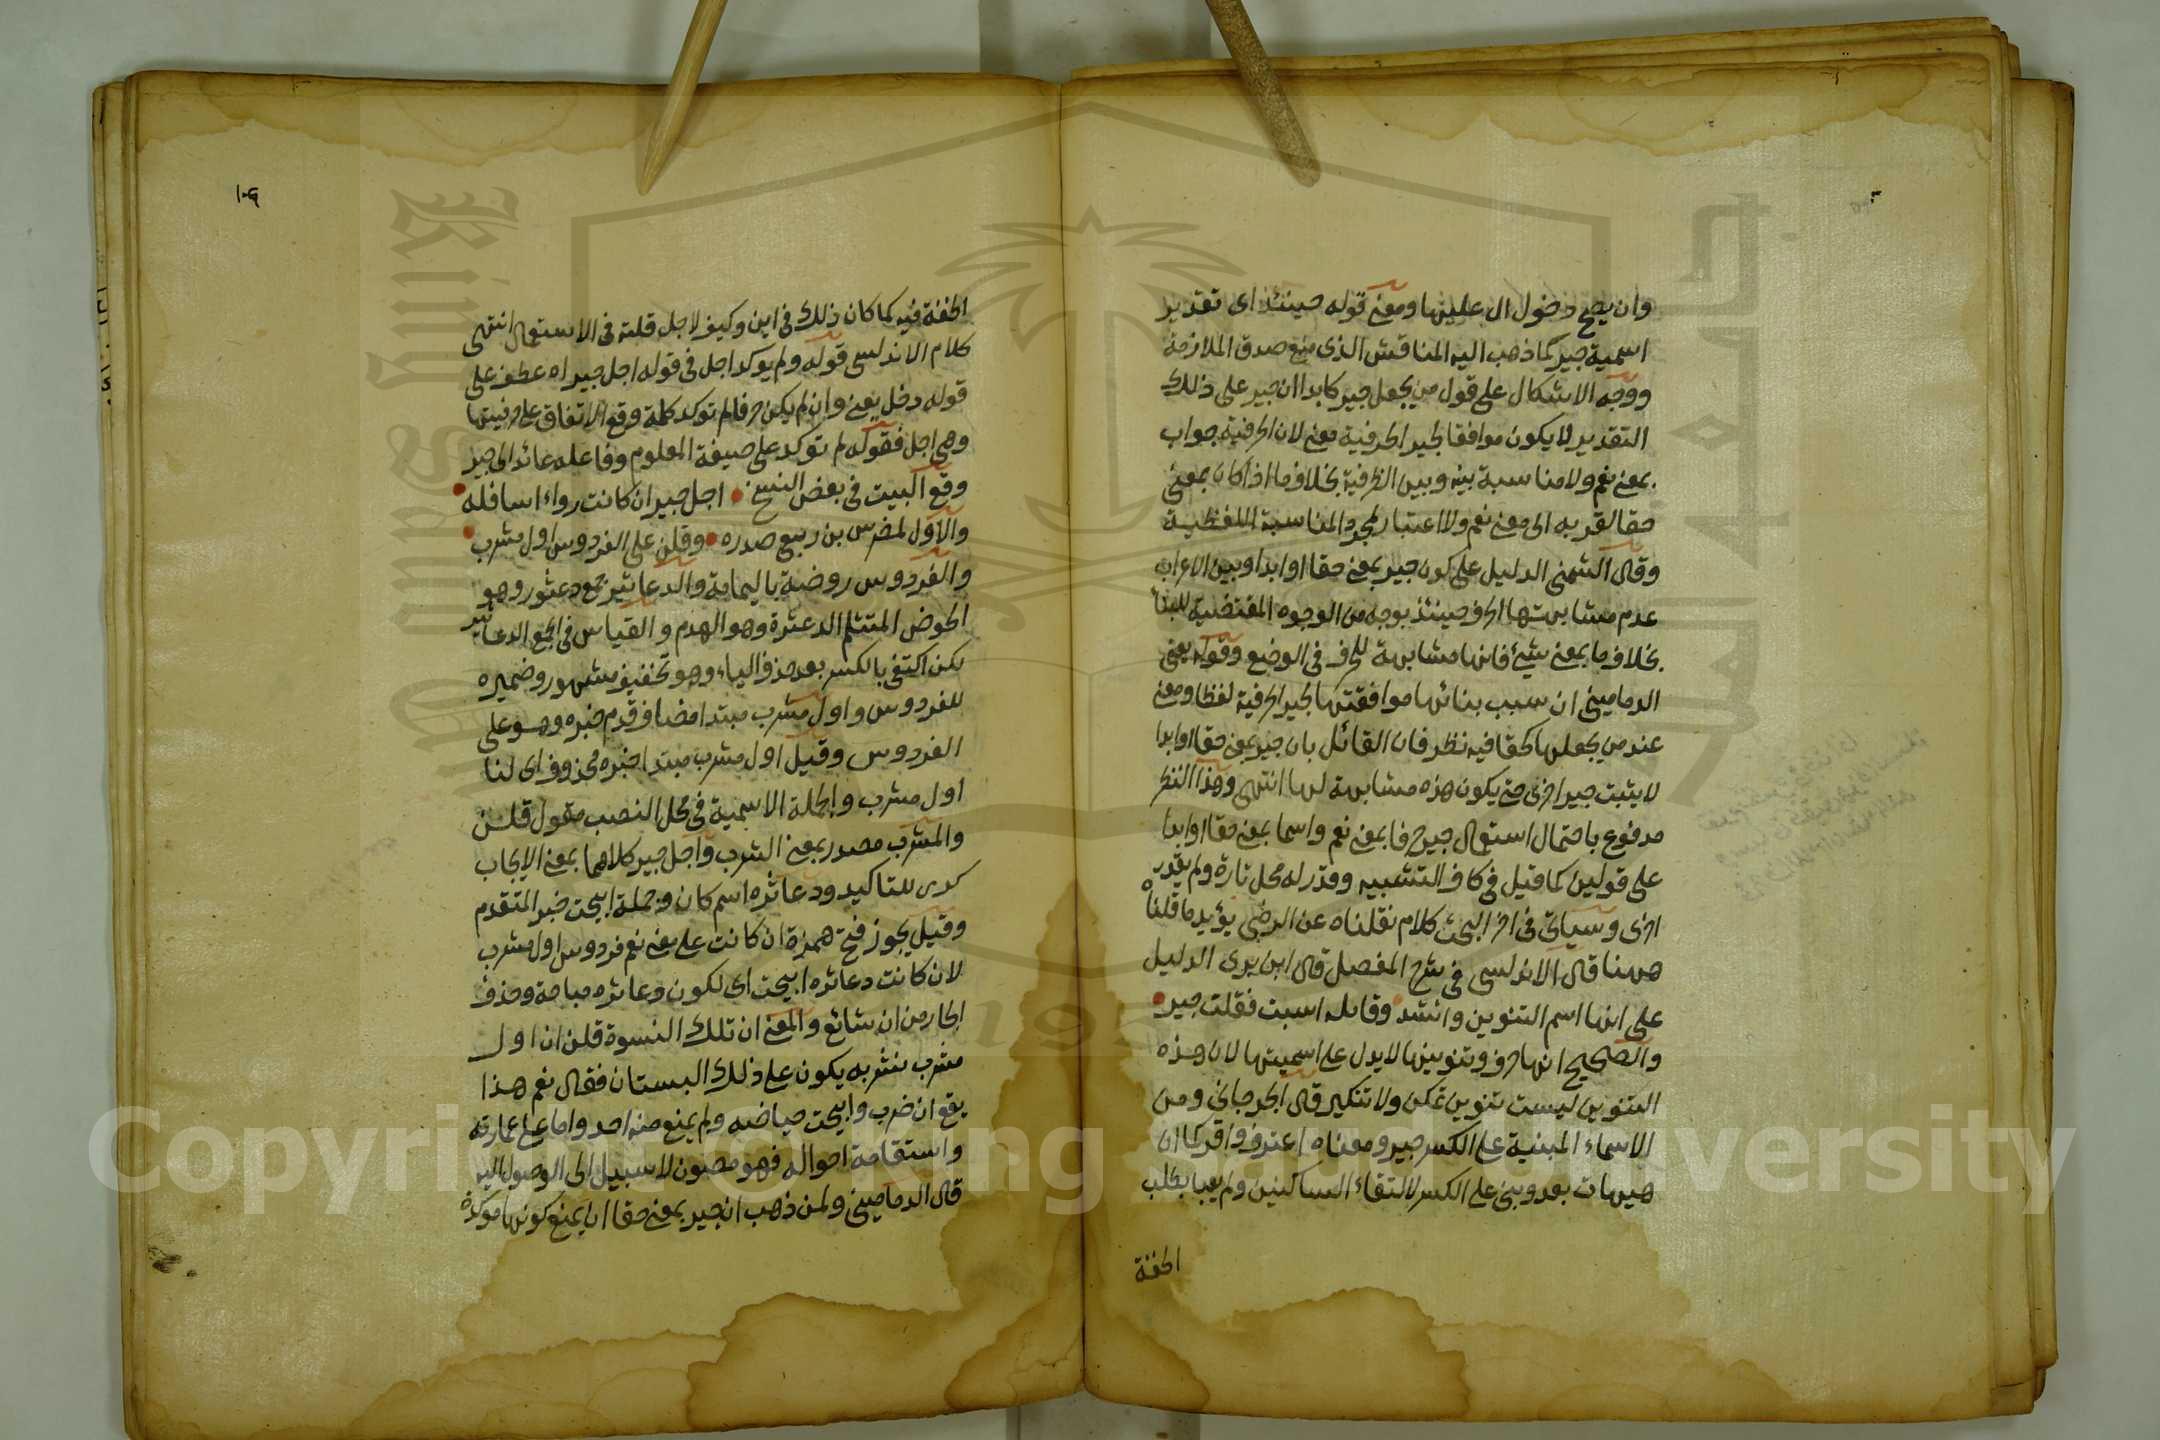 وان يصح دخول ال عليها ومعنى قوله حينئذ اى تقدير
اسمية جير كما ذهب اليه المناقش الذى منع صدق الملازمة
ووجه الاشكال على قول من يجعل جير كابدا ان جير على ذلك
التقدير لا يكون موافقا لجير الحرفية معنى لان الحرفية جواب
بمعنى نعم ولا مناسبة بينه وبين الظرفية بخلاف ما اذا كان بمعنى
حقا لقربه الى معنى نعم ولا اعتبار لمجرد المناسبة اللفظية
وقال الشمنى الدليل على كون جير بمعنى حقا او ابدا وبين الاعراب
عدم مشابهتها الحرف حينئذ بوجه من الوجوه المقتضية للبناء
بخلاف ما بمعنى شئ فانها مشابهة للحرف فى الوضع وقوله يعنى
الدمامينى ان سبب بنائها موافقتها لجير الحرفية لفظا ومعنى
عند من يجعلها كحقا فيه نظر فان القائل بان جير بمعنى حقا او ابدا
لا يثبت جير اخرى حتى يكون هذه مشابهة لها انتهى وهذا النظر
مدفوع باحتمال استعمال جير حرفا بمعنى نعم واسما بمعنى حقا او ابدا
على قولين كما قيل فى كاف التشبيه وقدر له محل تارة ولم يقدر
اخرى وسياتى فى اخر البحث كلام نقلناه عن الرضى يؤيد ما قلناه
ههنا قال الاندلسى فى شرح المفصل قال ابن برى الدليل
على انها اسم التنوين وانشد وقائلة اسيت فقلت جير
والصحيح انها حرف وتنوينها لا يدل على اسميتها لان هذه
التنوين ليست تنوين تمكن ولا تنكير قال الجرجانى ومن
الاسماء المبنية على الكسر جير ومعناه اعترف واقر كما ان
هيهات بعد وبنى على الكسر لالتقاء الساكنين ولم يعبا بطلب
الخفة
١٠٩
الخفة فيه كما كان ذلك فى اين وكيف لاجل قلته فى الاستعمال انتهى
كلام الاندلسى قوله ولم يوكد اجل فى قوله اجل جير اه عطف على
قوله دخل يعنى وان لم يكن حرفا لم توكد كلمة وقع الاتفاق على حرفيتها
وهى اجل فقوله لم توكد على صيغة المعلوم وفاعله عائد الى جير
وقع البيت فى بعض النسخ اجل جير ان كانت رواء اسافله
والاول لمضرس بن ربيع صدره وقلن على الفردوس اول مشرب
والفردوس روضة باليمامة والدعاثير جمع دعثور وهو
الحوض المتثلم الدعثرة وهو الهدم والقياس فى الجمع الدعاثير
لكن اكتفى بالكسر بعد حذف الياء وهو تخفيف مشهور وضميره
للفردوس واول مشرب مبتدا مضاف قدم خبره وهو على
الفردوس وقيل اول مشرب مبتدا خبره محذوف اى لنا
اول مشرب والجملة الاسمية فى محل النصب مقول قلن
والمشرب مصدر بمعنى الشرب واجل جير كلاهما بمعنى الايجاب
كرر للتاكيد ودعاثره اسم كان وجملة ابيحت خبر المتقدم
وقيل يجوز فتح همزة ان كانت على معنى نعم فردوس اول مشرب
لان كانت دعاثره ابيحت اى لكون دعاثره مباحة وحذف
الجار من ان شائع والمعنى ان تلك النسوة قلن ان اول
مشرب نشربه يكون على ذلك البستان فقال نعم هذا
يقع ان ضرب وابيحت حياضه ولم يمنع منه احد واما على عمارته
واستقامة احواله فهو مصون لا سبيل الى الوصول اليه
قال الدمامينى ولمن ذهب ان جير بمعنى حقا ان يمنع كونها موكدة
Copyright © King Saud University
King Saud University
1957